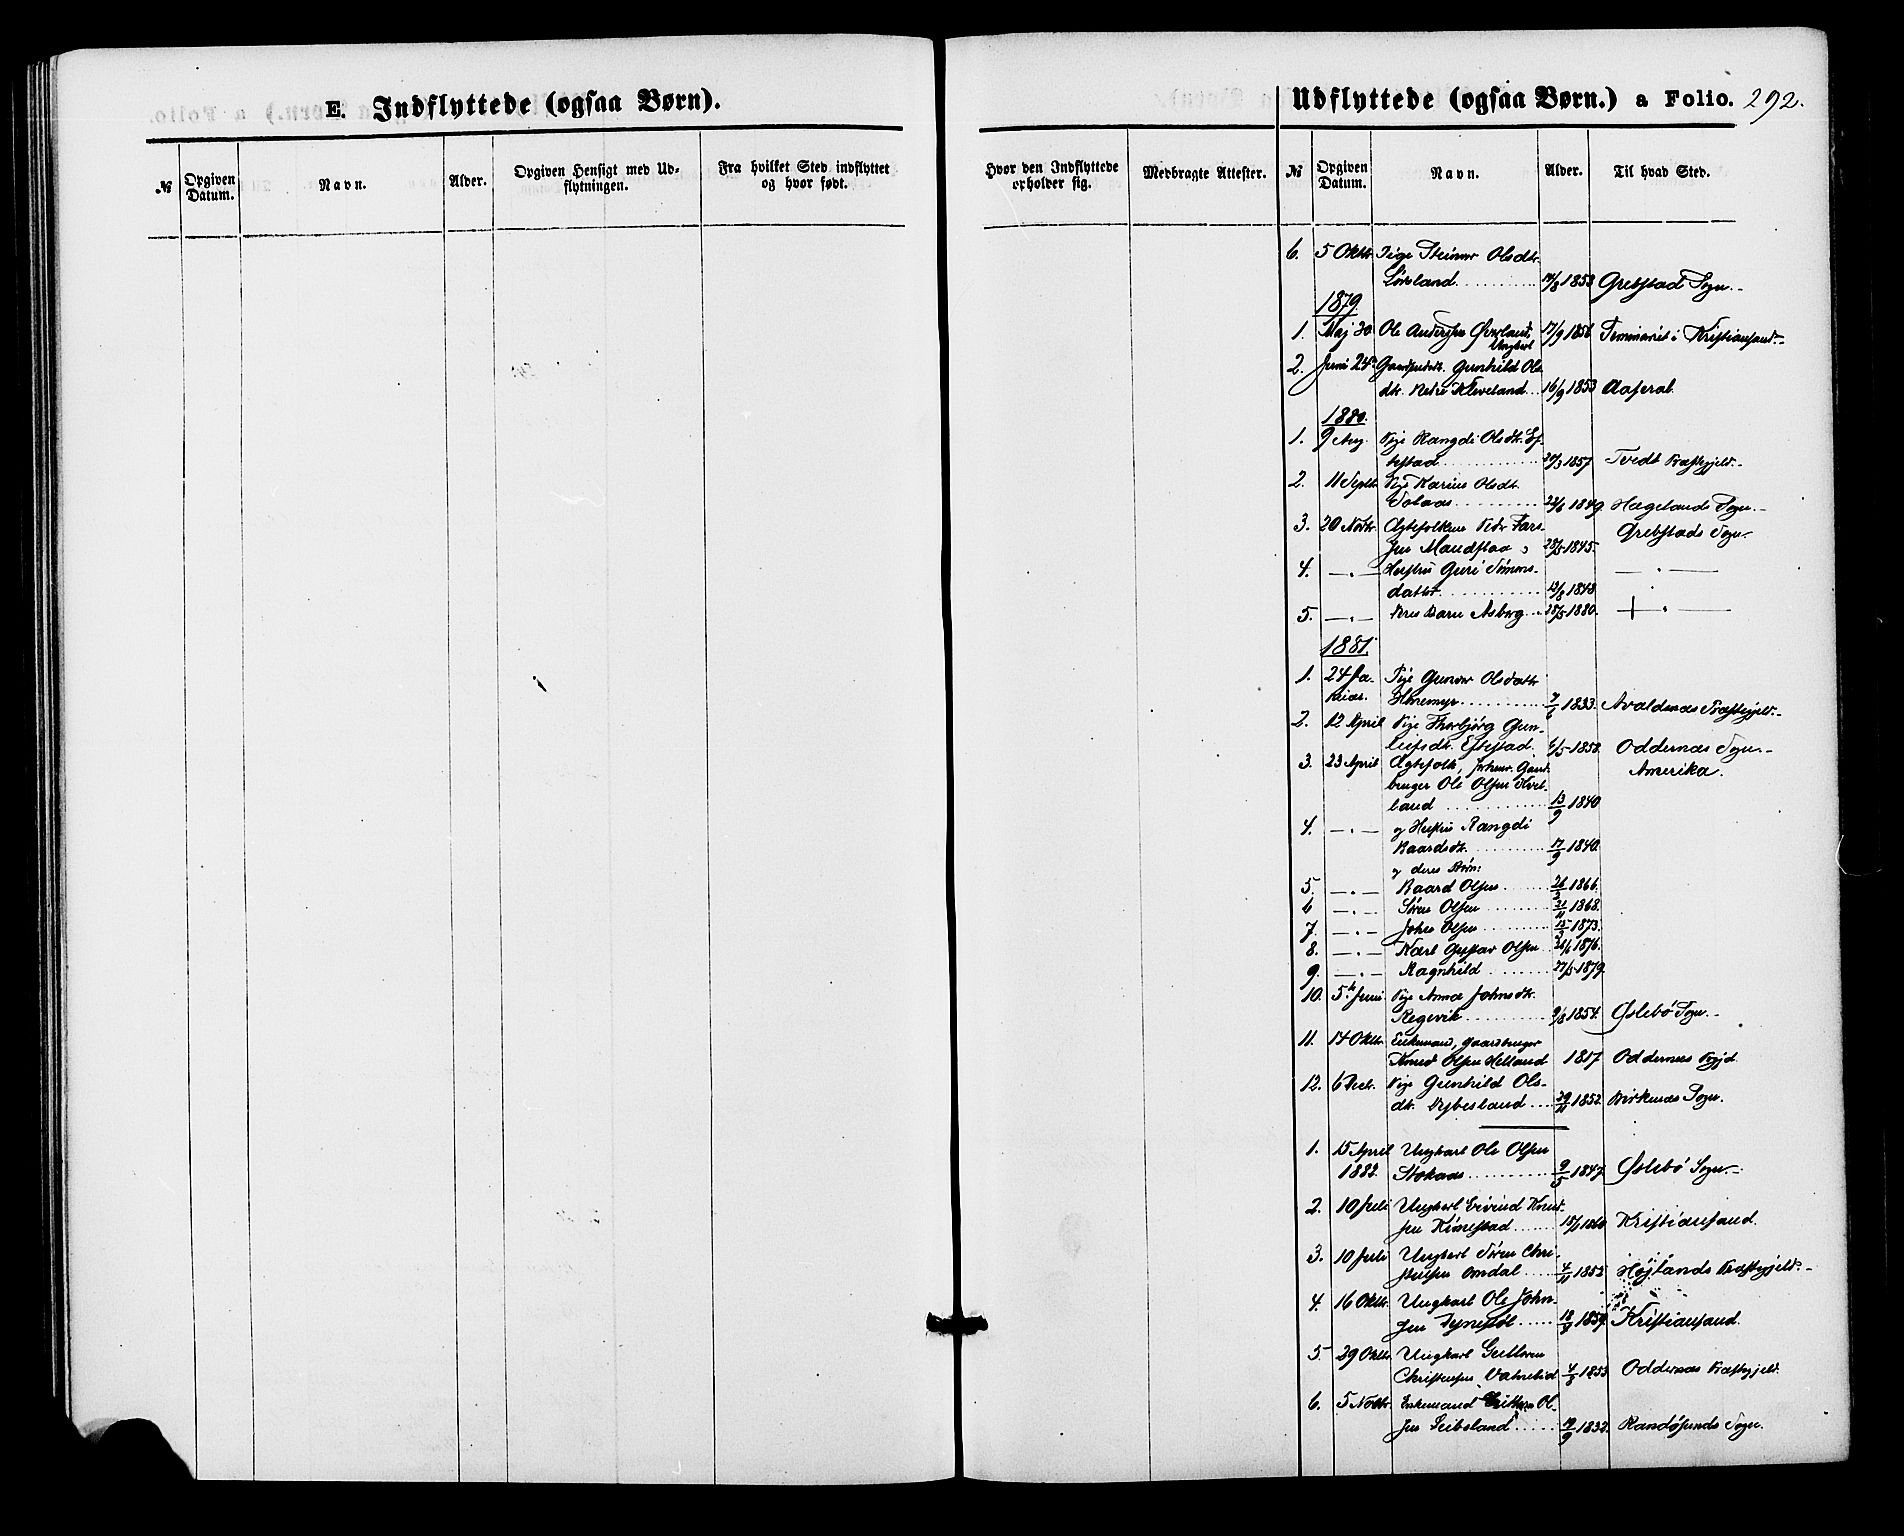 E. Indflyttede (ogsaa Børn).
№ Opgiven Datum. Navn. Alder. Opgiven Hensigt med Udflytningen. Fra hvilket Sted indflyttet og hvor født.
Hvor den Indflyttede opholder sig. Medbragte Attester.
Udflyttede (ogsaa Børn.) a Folio. 292.
№ Opgiven Datum. Navn. Alder. Til hvad Sted.
6. 5 Oktbr. Pige Steinvor Olsdtr.
Løveland. 14/8 1853 Grebstad Sogn.
1879
1. Maj 30 Ole Andersen Øverland, Ungkarl 17/9 1856 Seminariet i Kristiansand.
2. Juni 24 Gunhild Ols
dtr. Nedre Kleveland. 16/9 1853 Aaseral.
1880.
1. 9 Aug. Pige Rangdi Olsdtr. Ef-
testad 1857 Tvedt Præstegjeld.
2. 11 Septbr. Pige Karine Olsdt.
Solaas 1849. Hægelands Sogn.
3. 20 Novbr. Ægtefolkene Peder Lars-
sen Mandflaa 28/5 1845. Grebstads Sogn.
4. —.— Hustru Guri Simons-
datter. 1848 — . —
5. —.— deres Barn Asborg 25/5 1880. — . —
1881.
1. 24 Ja-
nuar. Pige Gunvor Olsdattr
Homemyr 7/6 1833. Avaldsnæs Præstegjeld.
2. 12 April Pige Thorbjørg Gun-
leifsdt. Eftestad. 6/5 1858. Oddernæs Sogn.
3. 23 April Ægtefolk, forhenv. Gaard-
bruger Ole Olsen Kvel-
land 13/9 1840 Amerika.
4. —.— og Hustru Rangdi
Baardsdt. 17/9 1840.
og deres Børn:
5. —.— Baard Olsen 1866.
6 —.— Søren Olsen 1868.
7. —.— Johs Olsen 1873.
8. —.— Karl Gustav Olsen 1876.
9. —.— Ragnhild 27/5 1879.
10. 5. Juni Pige Anna Johnsdt.
Regevik 9/8 1854. Øslebø Sogn.
11. 14 Oktbr. Enkemand, Gaardbruger
Knud Olsen Helland 1817 Oddernes Prgjd
12. 6 Decb. Pige Gunhild Ols-
dt. Vybesland 29/11 1852. Birkenæs Sogn.
1. 15 April
1882. Ungkarl Ole Olsen
Stokaas 9/5 1847. Øslebø Sogn.
2. 10 Juli Ungkarl Eivind Knud-
sen Kimestad 1860 Kristiansand.
3. 10 Juli Ungkarl Søren Chri-
stensen Omdal 4/11 1855 Højlands Præstegjeld.
4. 16 Oktbr. Ungkarl Ole John-
sen 18/8 1859. Kristiansand.
5 29 Oktbr. Ungkarl Guttorm
Christensen Vatnelid 4/8 1853 Oddernæs Præstegjeld.
6. 5 Novbr. Enkemand Guttorm Ol-
sen Leibsland 19/9 1832. Randøsunds Sogn.